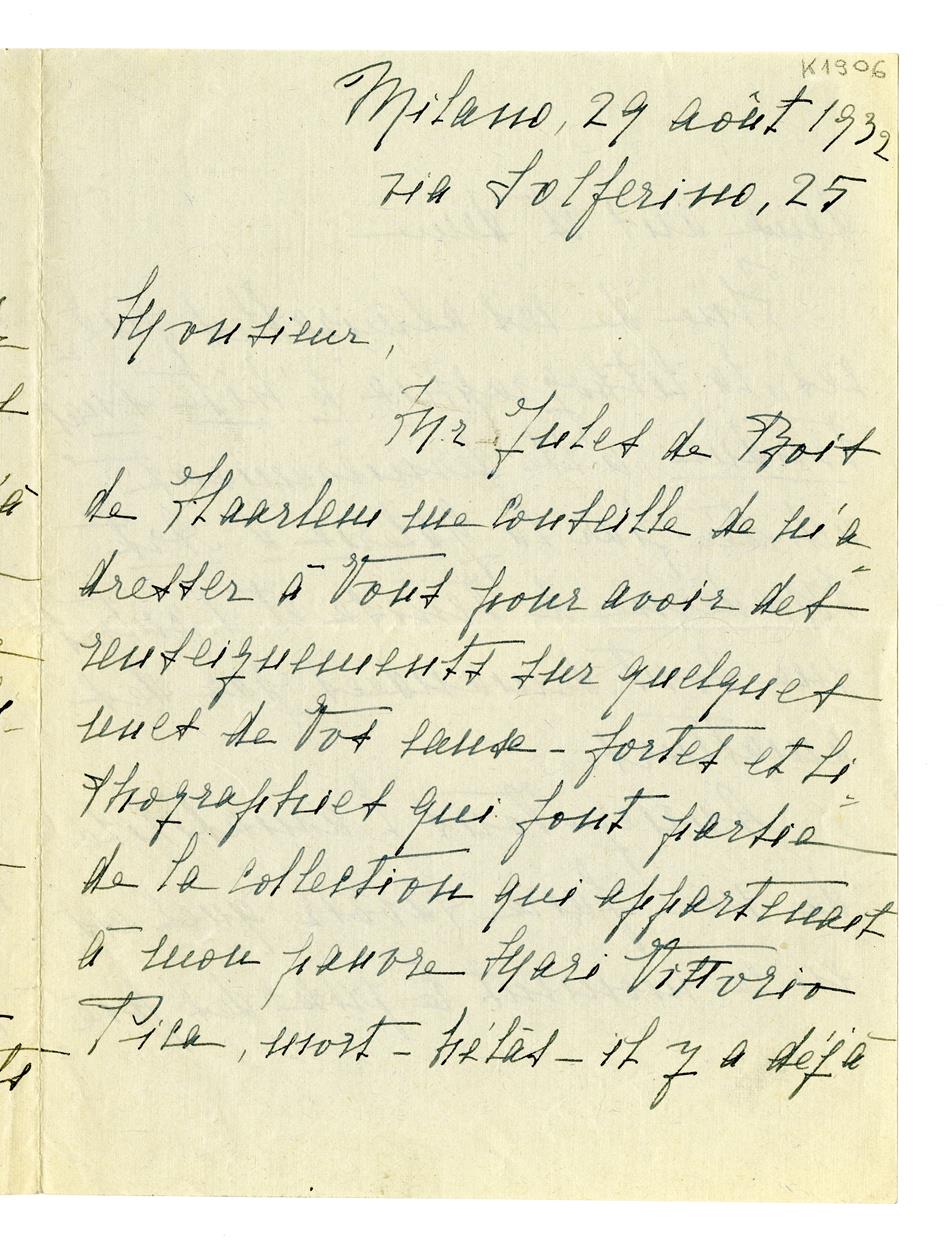 K1906
Milano, 29 août 1932
via Solferino, 25
Monsieur,
Mr Jules de Bois
de Haarlem me conseille de m'a
dresser à Vous pour avoir des
renseignements sur quelques
unes de Vos eaux-fortes et li
thographies qui font partie
de la collection qui appartenait
à mon pauvre Mari Vittorio
Pica, mort – hélas – il y a déjà